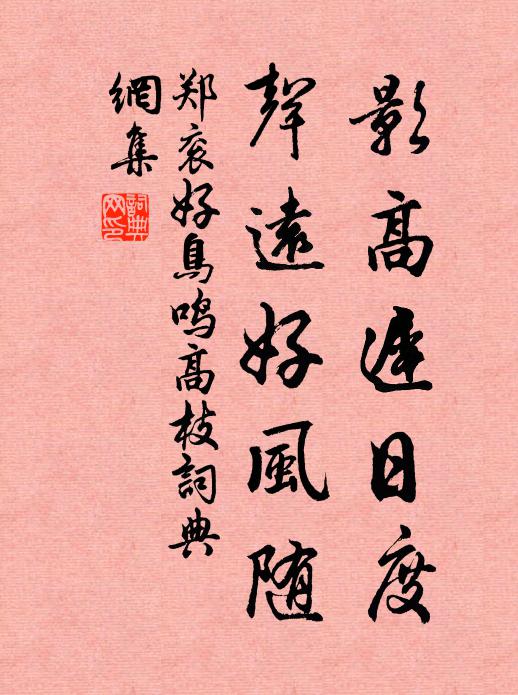 影高遲日度
聲遠好風随
郑衮好鳥鸣高枝詞典
網集
詞典
网印